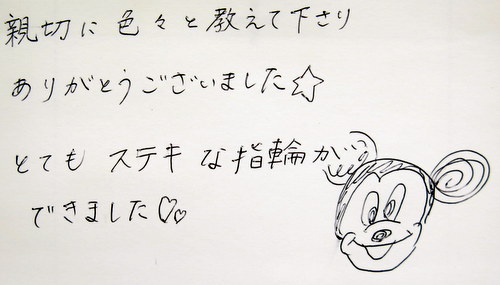 親切に色々と教えて下さり
ありがとうございました☆
とてもステキな指輪が
できました♡♡